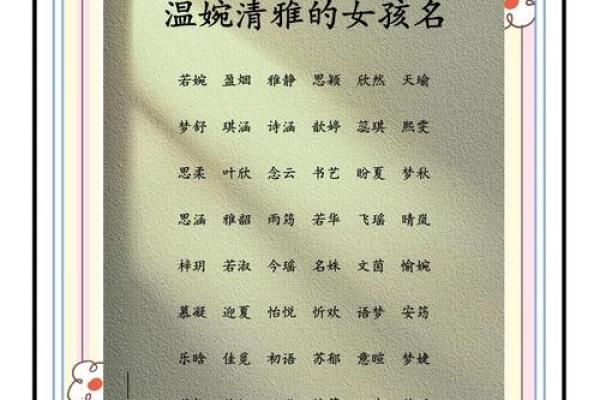 温婉清雅的女孩名
若婉 盈烟 雅静 思颖 欣然 天瑜
梦舒 琪涵 诗涵 歆婷 蕊琪 熙雯
思柔 叶欣 念云 书艺 盼夏 梦秋
思涵 雅韶 雨筠 若华 飞瑶 晴岚
梓玥 若淑 今瑶 名姝 文茵 愉婉
慕凝 迎夏 怡悦 忻欢 语梦 安筠
乐晗 佳觅 初语 苏郁 意暄 梦婕